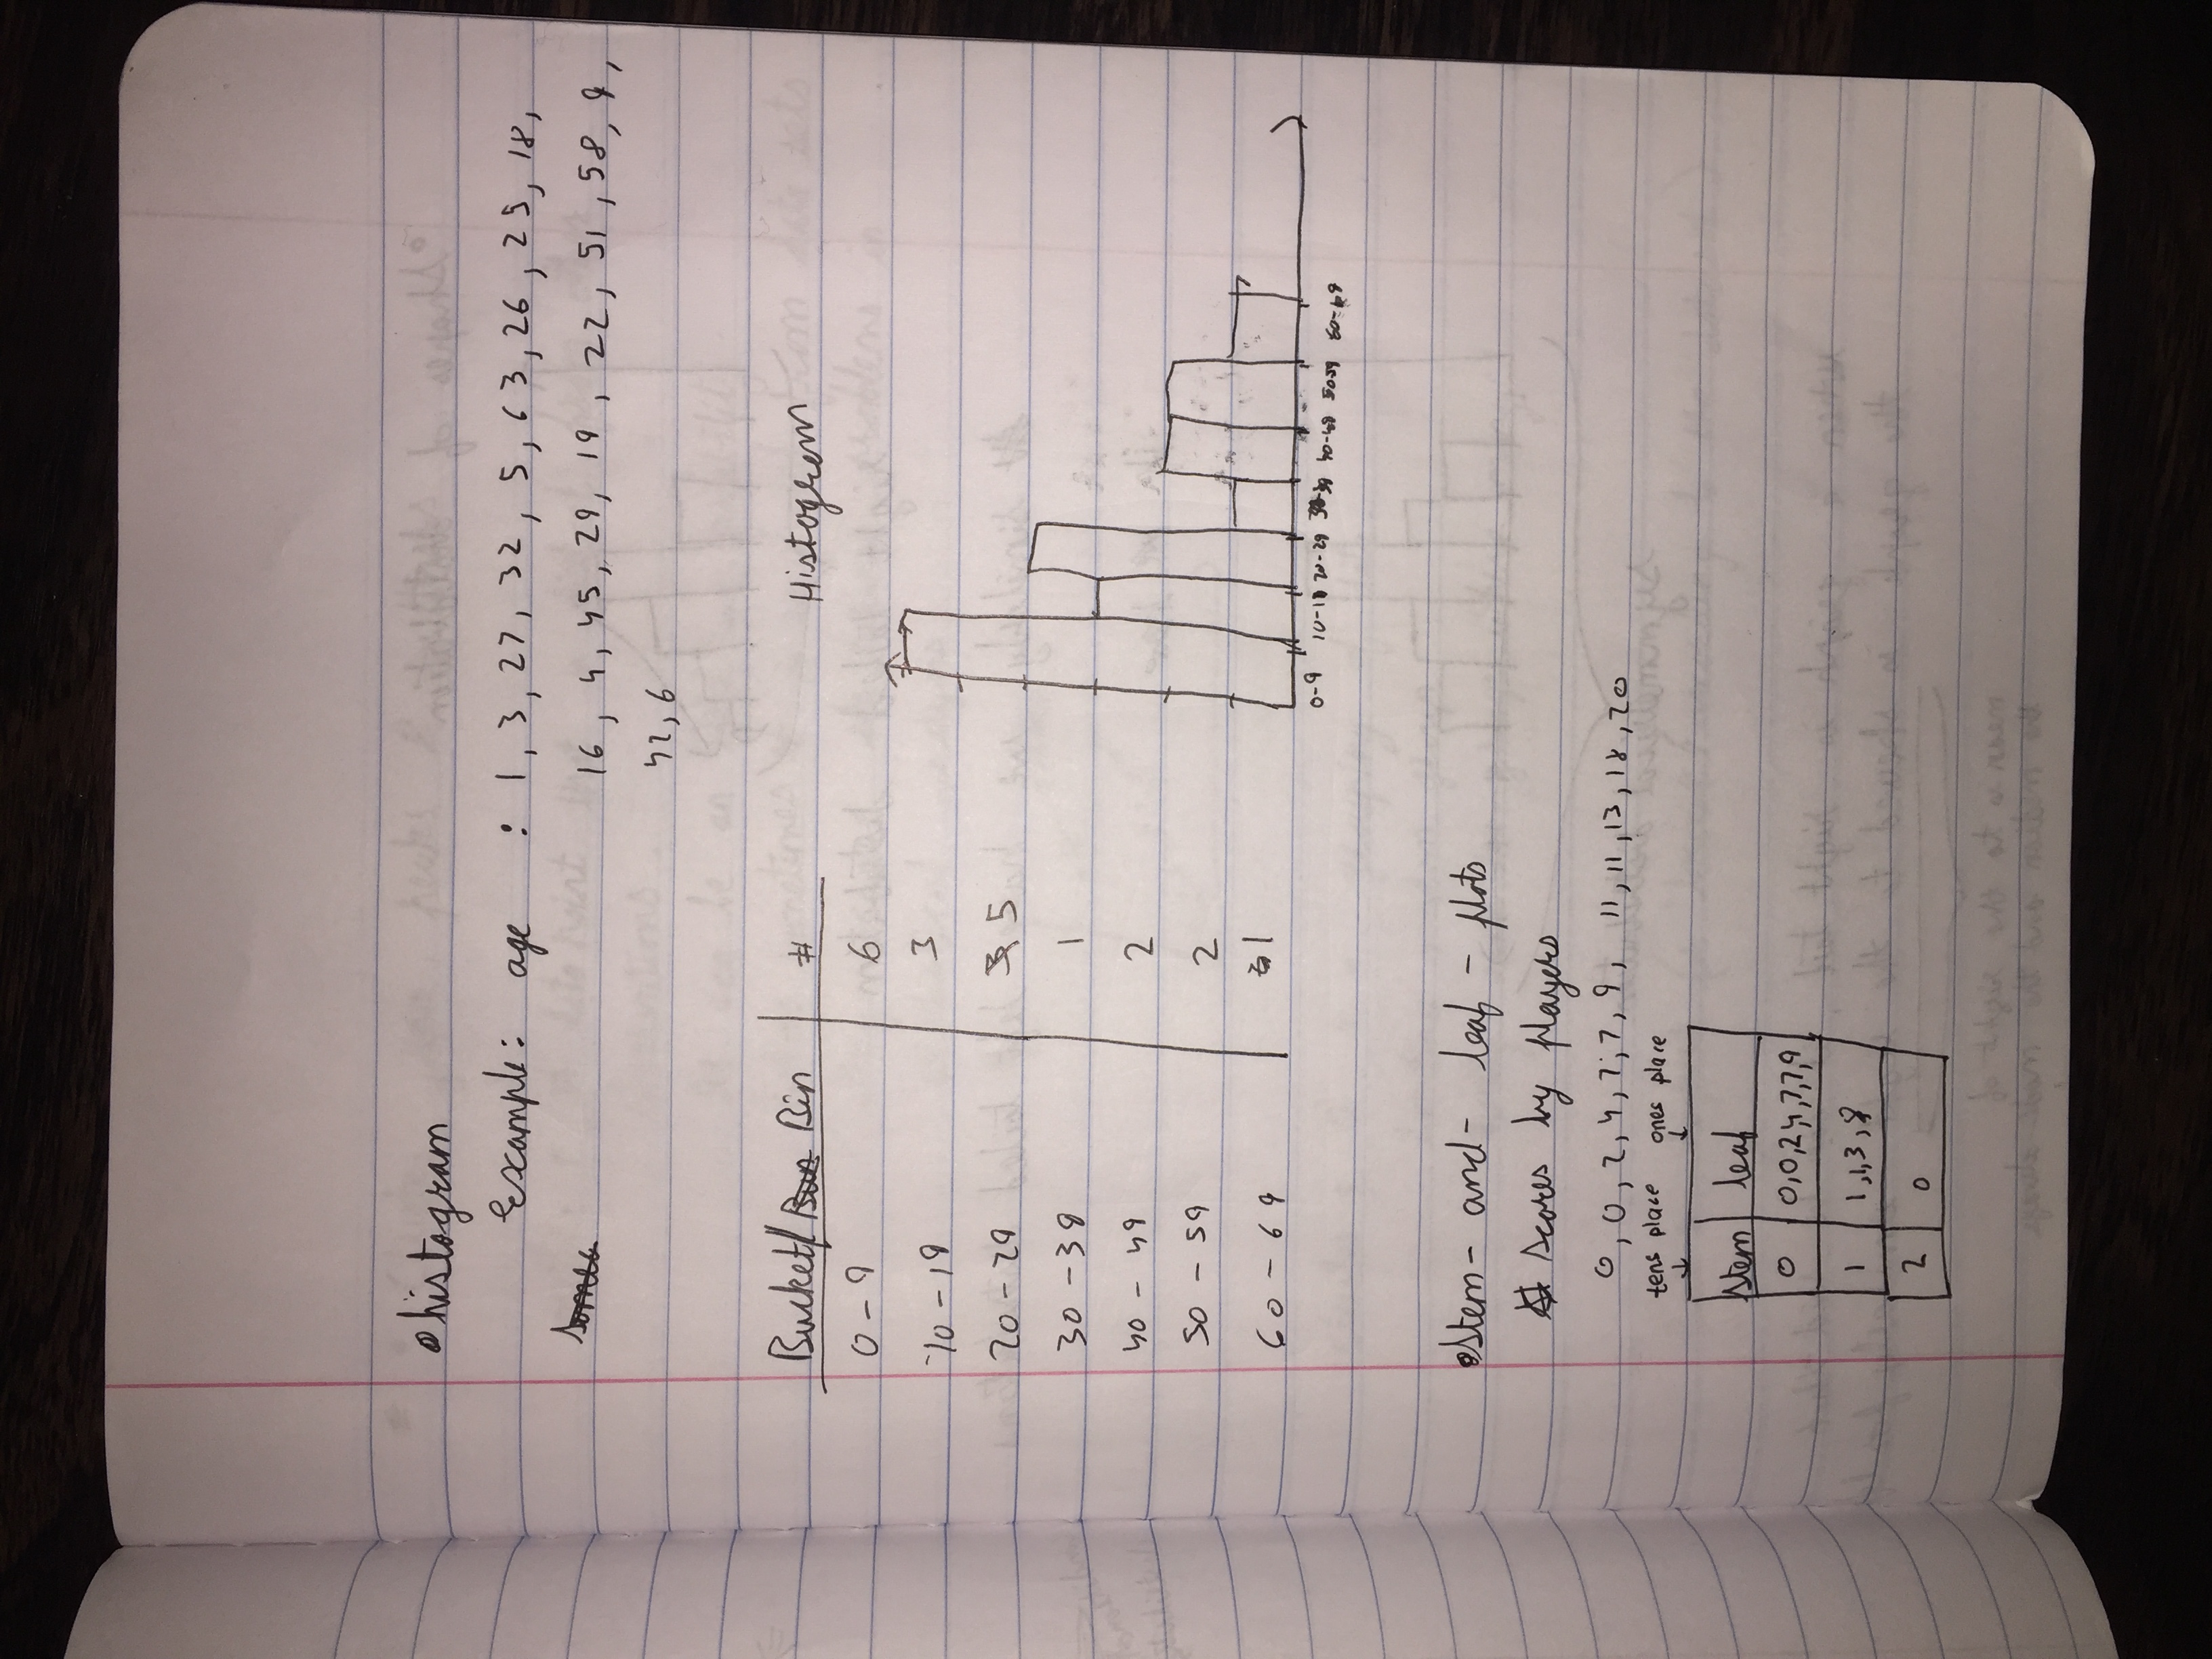 histogram
Example: age : 1, 3, 27, 32, 5, 63, 26, 25, 18,
16, 4, 45, 29, 19, 22, 51, 58, 9,
42, 6
Bucket/ Bin #
0 - 9 6
10 - 19 3
20 - 29 5
30 - 39 1
40 - 49 2
50 - 59 2
60 - 69 1
Histogram
0-9 10-19 20-29 40-49 50-59 60-69
Stem- and- leaf - plots
# scores by players
0, 0, 2, 4, 7, 7, 9, 11, 11, 13, 18, 20
tens place ones place
stem leaf
0 0,0,2,4,7,7,9
1 1,1,3,8
2 0